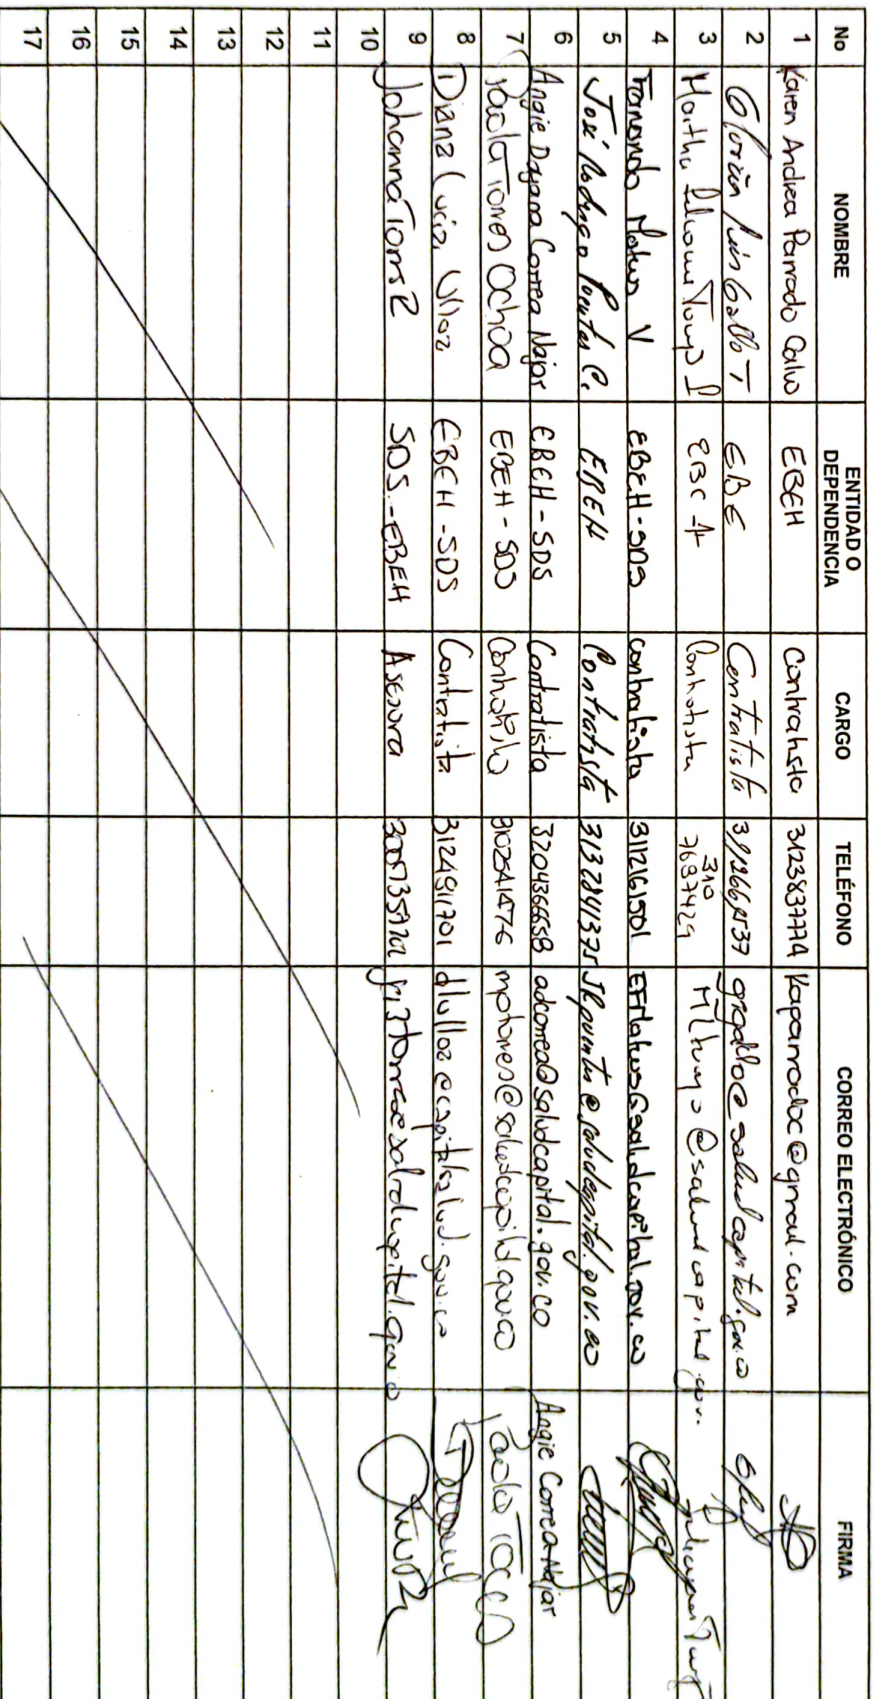 No NOMBRE ENTIDAD O DEPENDENCIA CARGO TELÉFONO CORREO ELECTRÓNICO FIRMA
1 Karen Andrea Parrado Calvo EBEH Contratista 3123837774 Kaparradoc@gmail.com
2 Gloria Inés Gallo T EBE Contratista gigallo@saludcapital.gov.co
3 Martha Liliana EBEH Contratista 310 7687429 @saludcapital.gov.
4 Fernando Mateus V EBEH-SDS contratista 3112161501 EFMateus@saludcapital.gov.co
5 José Rodrigo Puentes C. EBEH Contratista 3132841375 JRpuentes@saludcapital.gov.co
6 Angie Dayana Correa Najar EBEH-SDS Contratista 320436658 adcorrea@saludcapital.gov.co Angie Correa Najar
7 Paola Torres Ochoa EBEH-SDS Contratista 3102541476 mptorres@saludcapital.gov.co Paola Torres
8 Diana Lucia Ulloa EBEH-SDS Contratista 3124911701 dlulloa@capitalsalud.gov.co
9 Johanna Torres R SDS-EBEH Asesora
10
11
12
13
14
15
16
17